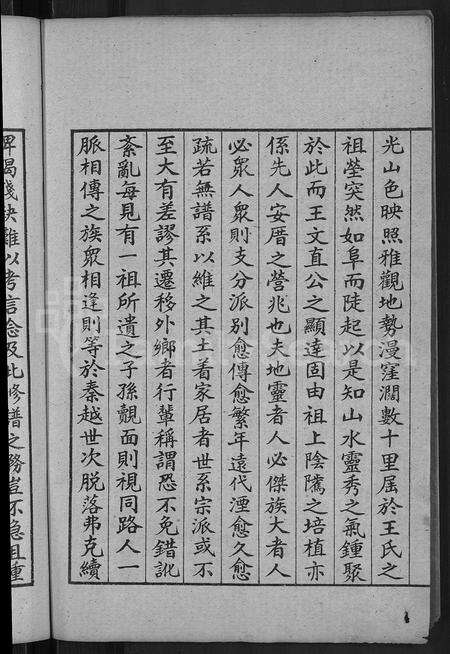 光山色映照雅觀地勢漫窪濶數十里屆於王氏之
祖塋突然如阜而陡起以是知山水靈秀之氣鍾聚
於此而王文直公之顯達固由祖上陰隲之培植亦
係先人安厝之營兆也夫地靈者人必傑族大者人
必眾人眾則支分派別愈傳愈繁年遠代湮愈久愈
疏若無譜系以維之其土着家居者世系宗派或不
至大有差謬其遷移外鄉者行輩稱謂恐不免錯訛
紊亂每見有一祖所遺之子孫覿面則視同路人一
脈相傳之族眾相逢則等於秦越世次脫落弗克續
碑碣殘缺難以考言念及此修譜之務豈不急且重